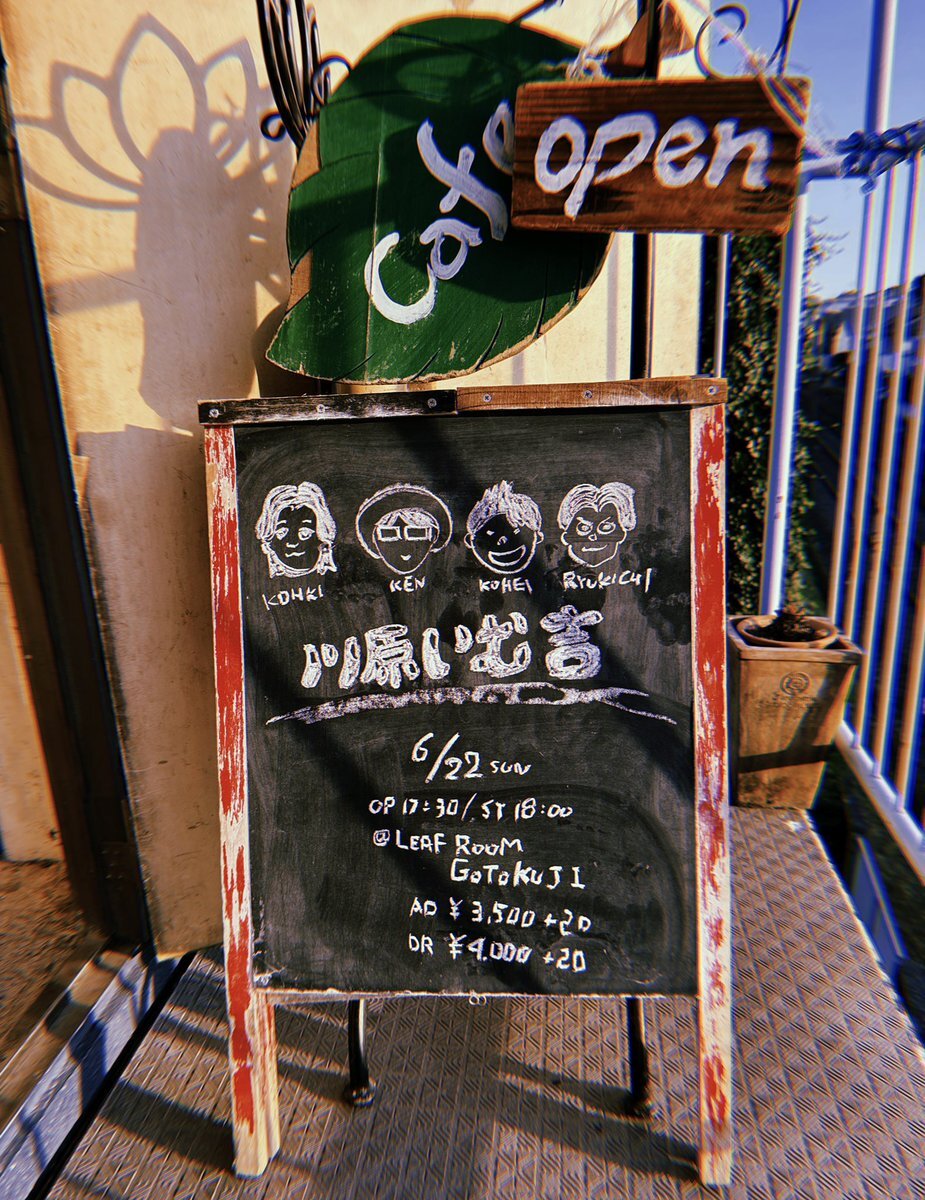 Cafe
open
KOHKI KEN KOHEI RYUKICHI
川原いむ吉
6/22 SUN
OP 17:30/ST 18:00
@LEAF ROOM
GOTOKUJI
AD ¥3,500+2D
DR ¥4.000+2D